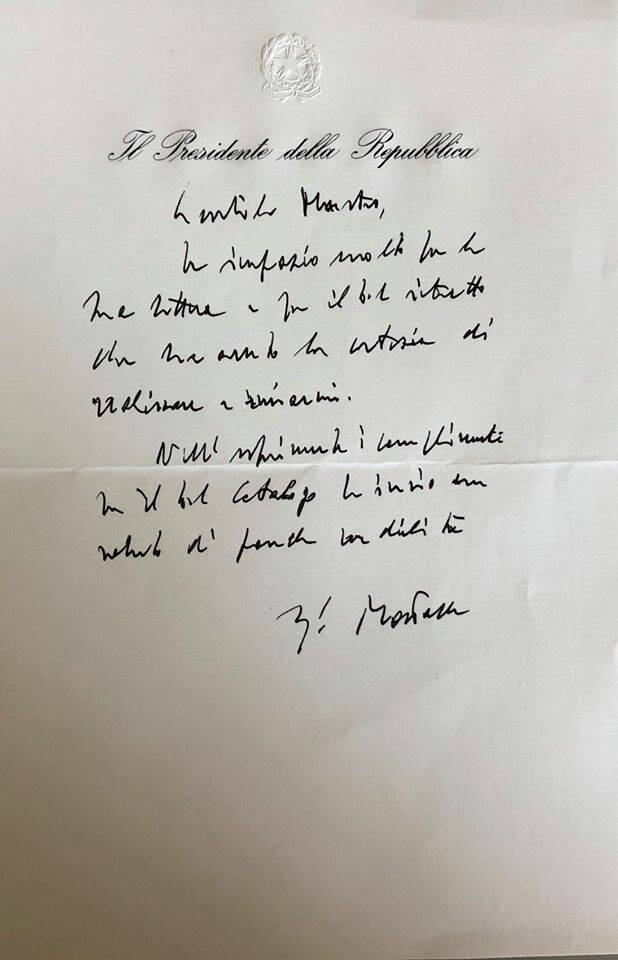 Il Presidente della Repubblica
Gentile Maestro,
la ringrazio molto per la
sua lettera e per il bel ritratto
che ha avuto la cortesia di
realizzare e inviarmi.
Nell'esprimerle i complimenti
per il bel catalogo le invio un
saluto di grande cordialità
Mattarella